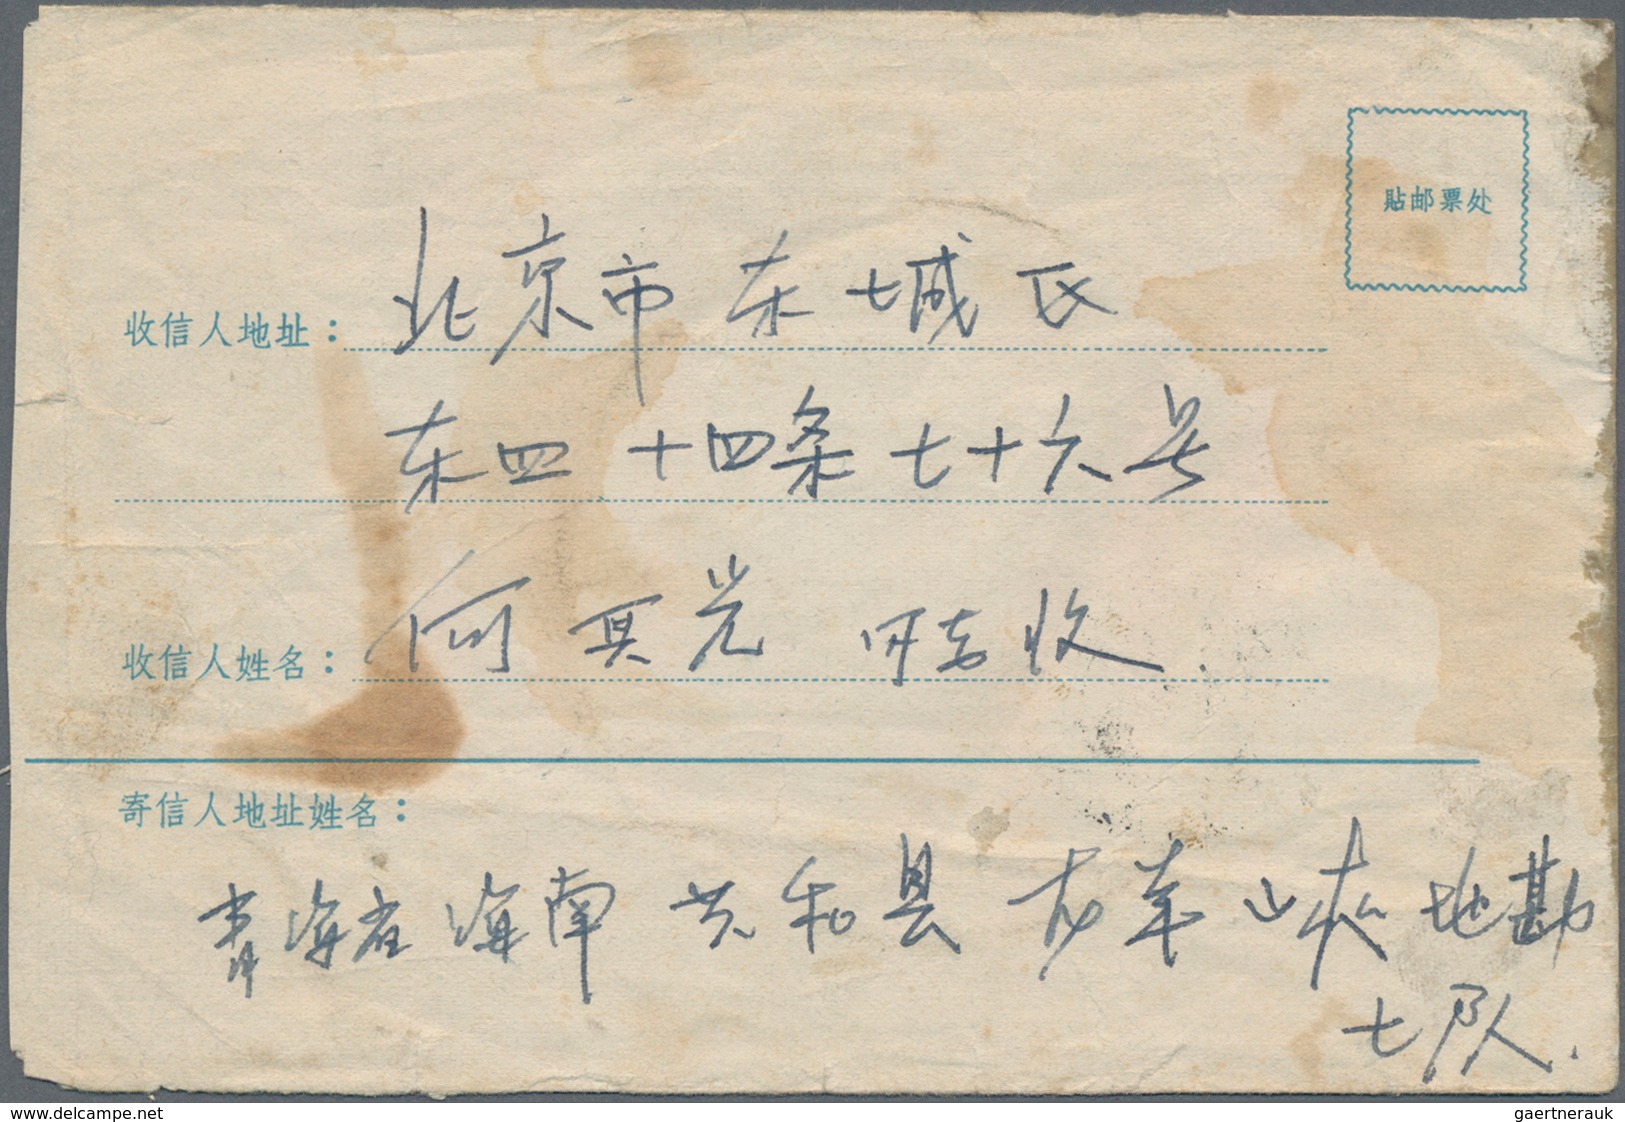 貼邮票处
收信人地址：北京市东城区
东四十四条七十六号
收信人姓名：何其光 同志收
寄信人地址姓名：
青海省海南共和县龙羊峡地勘
七队.
www.delcampe.net
gaertnerauk